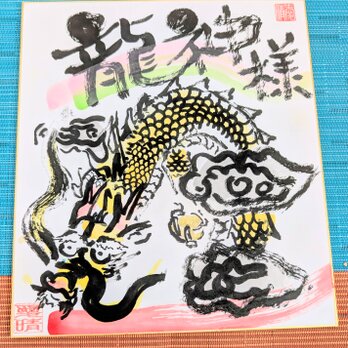 龍神様